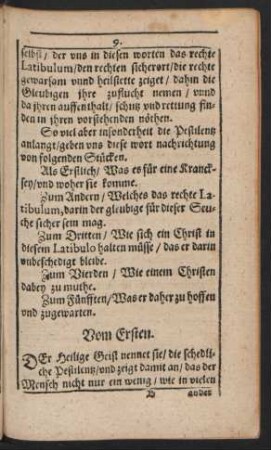 9.
selbst / der vns in diesen worten das rechte
Latibulum / den rechten sicherort / die rechte
gewarsam vnnd heilstette zeiget / dahin die
Gleubigen jhre zuflucht nemen / vnnd
da jhren auffenthalt / schutz vnd rettung fin-
den in jhren vorstehenden nöthen.
So viel aber insonderheit die Pestilentz
anlangt / geben vns diese wort nachrichtung
von folgenden Stücken.
Als Erstlich / Was es für eine Kranck-
sey / vnd woher sie komme.
Zum Andern / Welches das rechte La-
tibulum, darin der gleubige für dieser Seu-
che sicher sein mag.
Zum Dritten / Wie sich ein Christ in
diesem Latibulo halten müsse / das er darin
vnbeschedigt bleibe.
Zum Vierden / Wie einem Christen
dabey zu muthe.
Zum Fünfften / Was er daher zu hoffen
vnd zugewarten.
Vom Ersten.
DEr Heilige Geist nennet sie / die schedli-
che Pestilentz / vnd zeigt damit an / das der
Mensch nicht nur ein wenig / wie in vielen
D ander